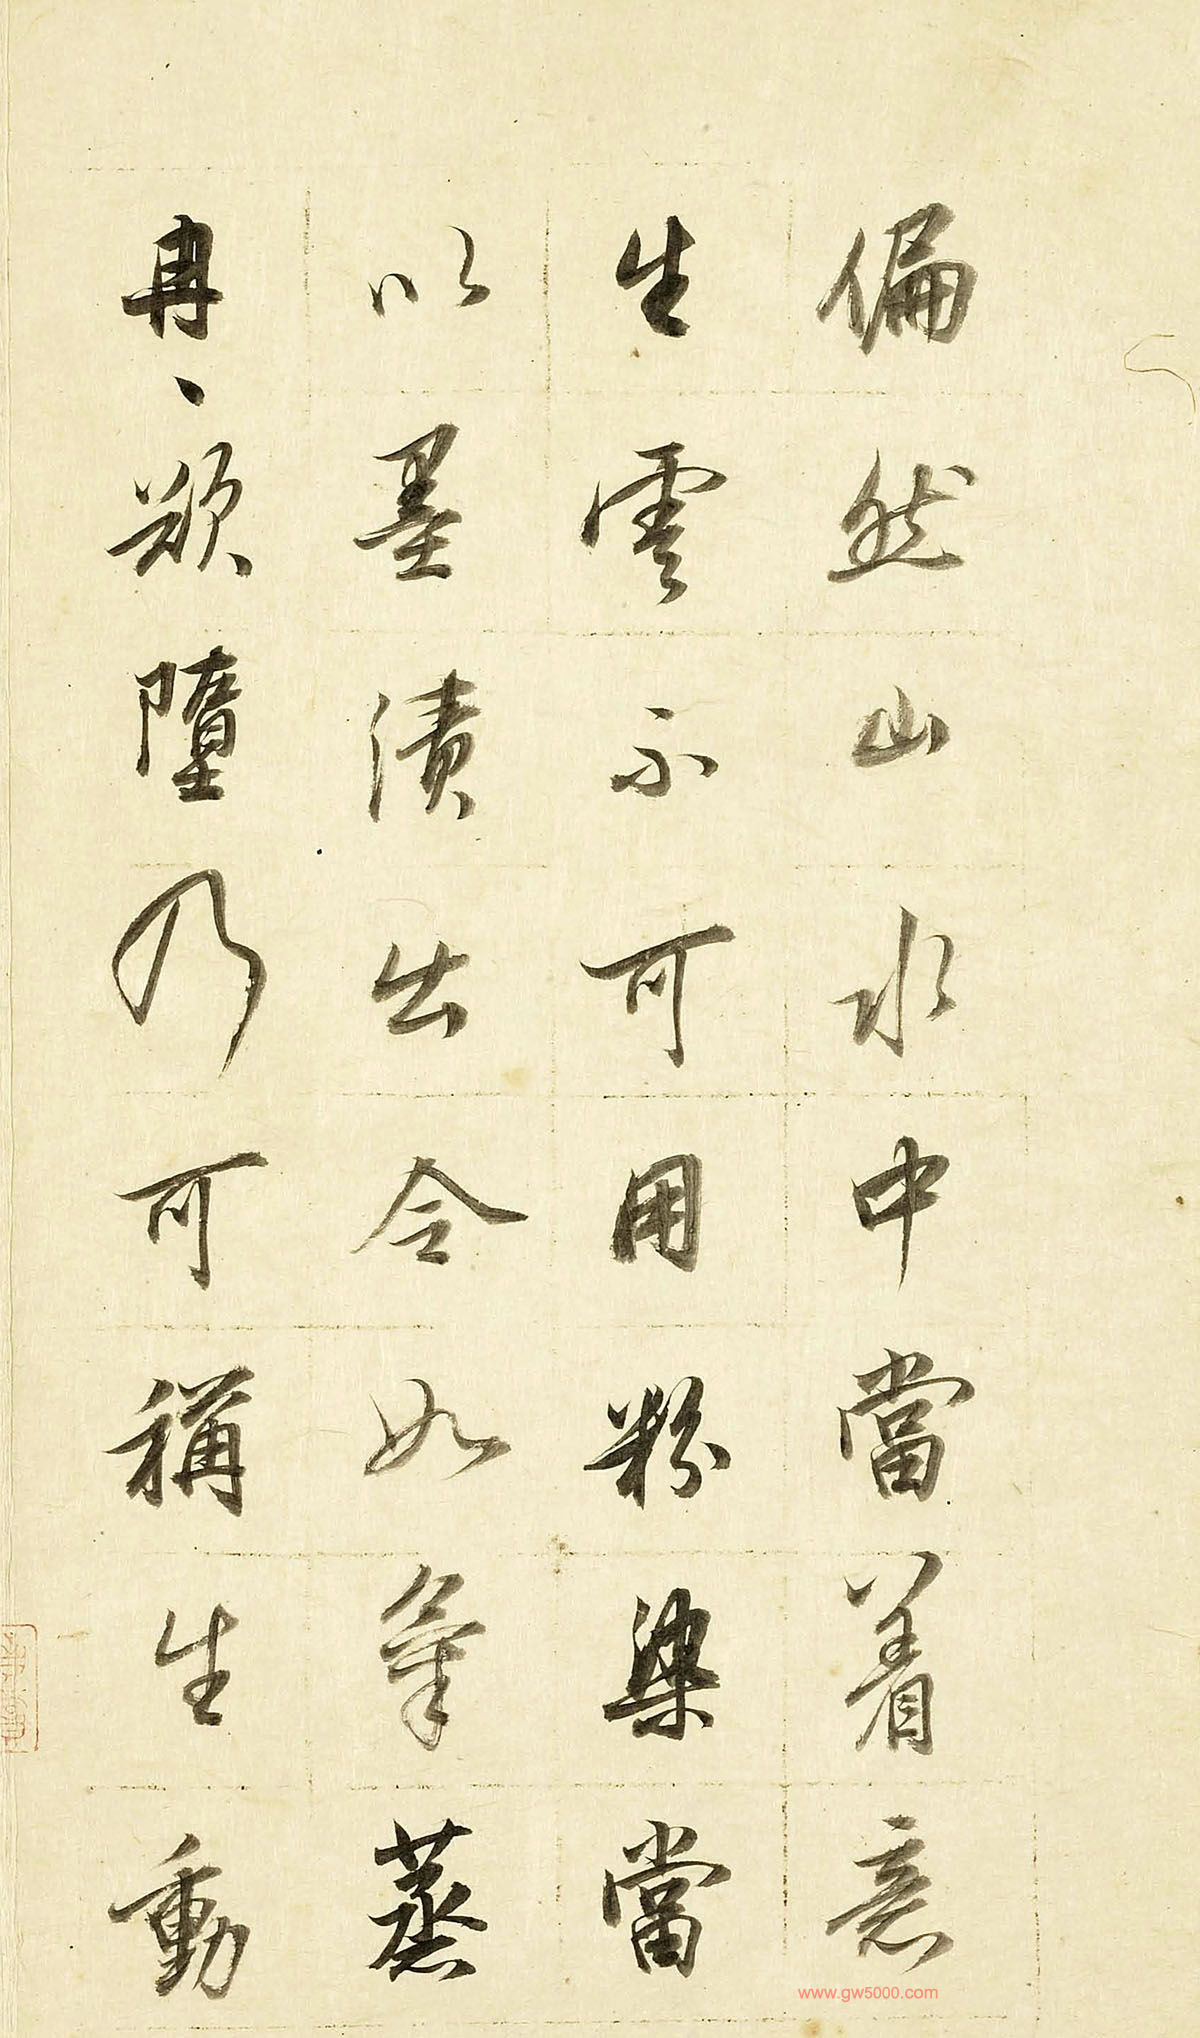 偏然山水中當着意
生雲不可用粉染當
以墨漬出令如氣蒸
冉冉欲墮乃可稱生動
www.gw5000.com